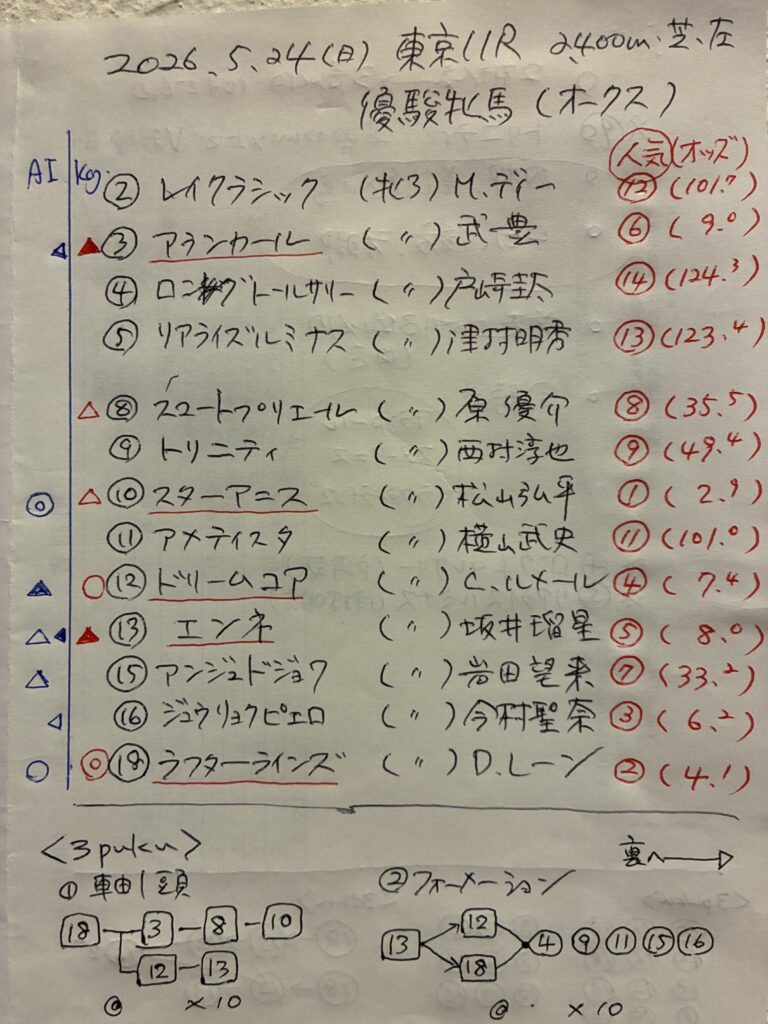 2026.5.24(日) 東京11R 2,400m.芝.左
優駿牝馬(オークス)
AI Kg. 人気(オッズ)
② レイクラシック (牝3) M.ディー ⑫(101.7)
◁ ▲ ③ アランカール (〃) 武豊 ⑥(9.0)
④ ロングトールサリー (〃) 戸崎圭太 ⑭(124.3)
⑤ リアライズルミナス (〃) 津村明秀 ⑬(123.4)
△ ⑧ スマートプリエール (〃) 原優介 ⑧(35.5)
⑨ トリニティ (〃) 西村淳也 ⑨(49.4)
◎ △ ⑩ スターアニス (〃) 松山弘平 ①(2.9)
⑪ アメティスタ (〃) 横山武史 ⑪(101.0)
▲ ○ ⑫ ドリームコア (〃) C.ルメール ④(7.4)
△ ◀ ▲ ⑬ エンネ (〃) 坂井瑠星 ⑤(8.0)
△ ⑮ アンジュドジョワ (〃) 岩田望来 ⑦(33.2)
◁ ⑯ ジュウリョクピエロ (〃) 今村聖奈 ③(6.2)
○ ◎ ⑱ ラフターラインズ (〃) D.レーン ②(4.1)
<3puku> 裏へ→
① 軸1頭 ② フォーメーション
18 3 8 10
12 13
@ ×10
13 12 18 ④ ⑨ ⑪ ⑮ ⑯
@ ×10